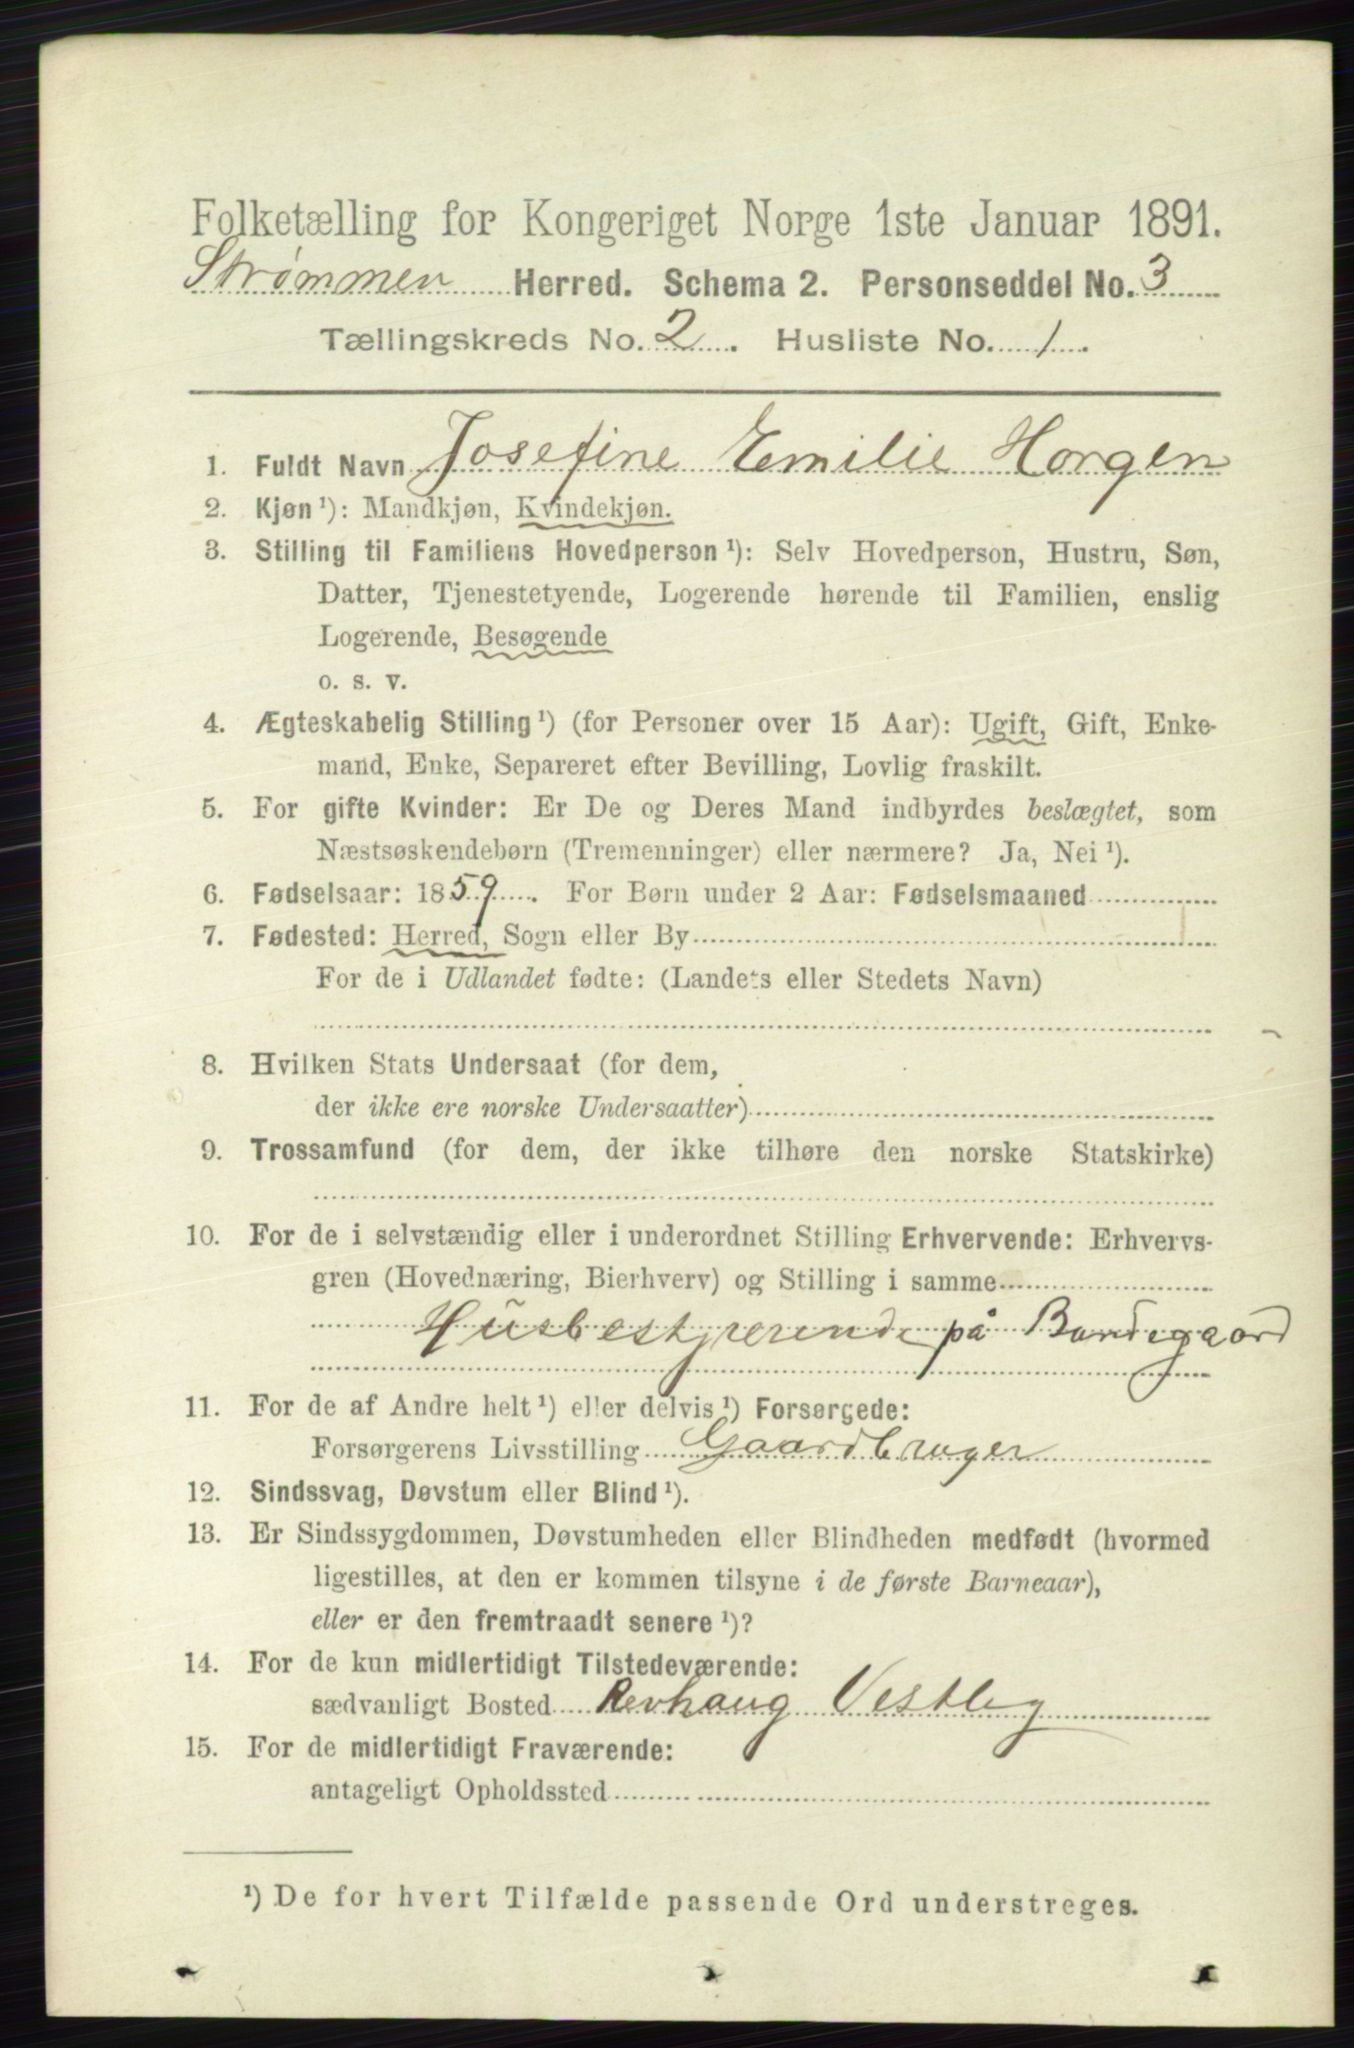 Folketælling for Kongeriget Norge 1ste Januar 1891.
Strømmen Herred. Schema 2. Personseddel No. 3
Tællingskreds No. 2. Husliste No. 1.
1. Fuldt Navn Josefine Emilie Horgen
2. Kjøn ¹): Mandkjøn, Kvindekjøn.
3. Stilling til Familiens Hovedperson ¹): Selv Hovedperson, Hustru, Søn,
Datter, Tjenestetyende, Logerende hørende til Familien, enslig
Logerende, Besøgende
o. s. v.
4. Ægteskabelig Stilling ¹) (for Personer over 15 Aar): Ugift, Gift, Enke-
mand, Enke, Separeret efter Bevilling, Lovlig fraskilt.
5. For gifte Kvinder: Er De og Deres Mand indbyrdes beslægtet, som
Næstsøskendebørn (Tremenninger) eller nærmere? Ja, Nei ¹).
6. Fødselsaar: 1859. For Børn under 2 Aar: Fødselsmaaned
7. Fødested: Herred, Sogn eller By
For de i Udlandet fødte: (Landets eller Stedets Navn)
8. Hvilken Stats Undersaat (for dem,
der ikke ere norske Undersaatter)
9. Trossamfund (for dem, der ikke tilhøre den norske Statskirke)
10. For de i selvstændig eller i underordnet Stilling Erhvervende: Erhvervs-
gren (Hovednæring, Bierhverv) og Stilling i samme
Husbestjrerende på Bondegaard
11. For de af Andre helt ¹) eller delvis ¹) Forsørgede:
Forsørgerens Livsstilling Gaardbruger
12. Sindssvag, Døvstum eller Blind ¹).
13. Er Sindssygdommen, Døvstumheden eller Blindheden medfødt (hvormed
ligestilles, at den er kommen tilsyne i de første Barneaar),
eller er den fremtraadt senere ¹)?
14. For de kun midlertidigt Tilstedeværende:
sædvanligt Bosted Revhaug Vestby
15. For de midlertidigt Fraværende:
antageligt Opholdssted
¹) De for hvert Tilfælde passende Ord understreges.